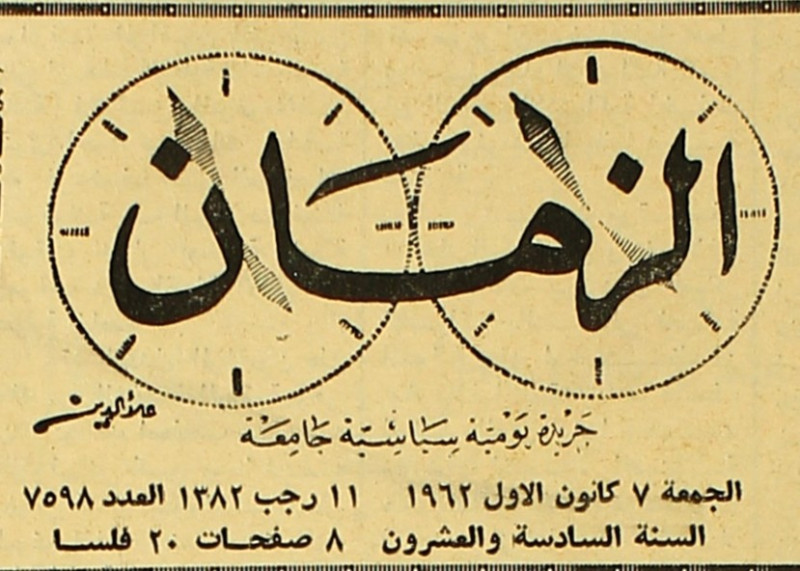 الزمان
علاءالدين
جريدة يومية سياسية جامعة
الجمعة ٧ كانون الاول ١٩٦٢ ١١ رجب ١٣٨٢ العدد ٧٥٩٨
السنة السادسة والعشرون ٨ صفحات ٢٠ فلسا